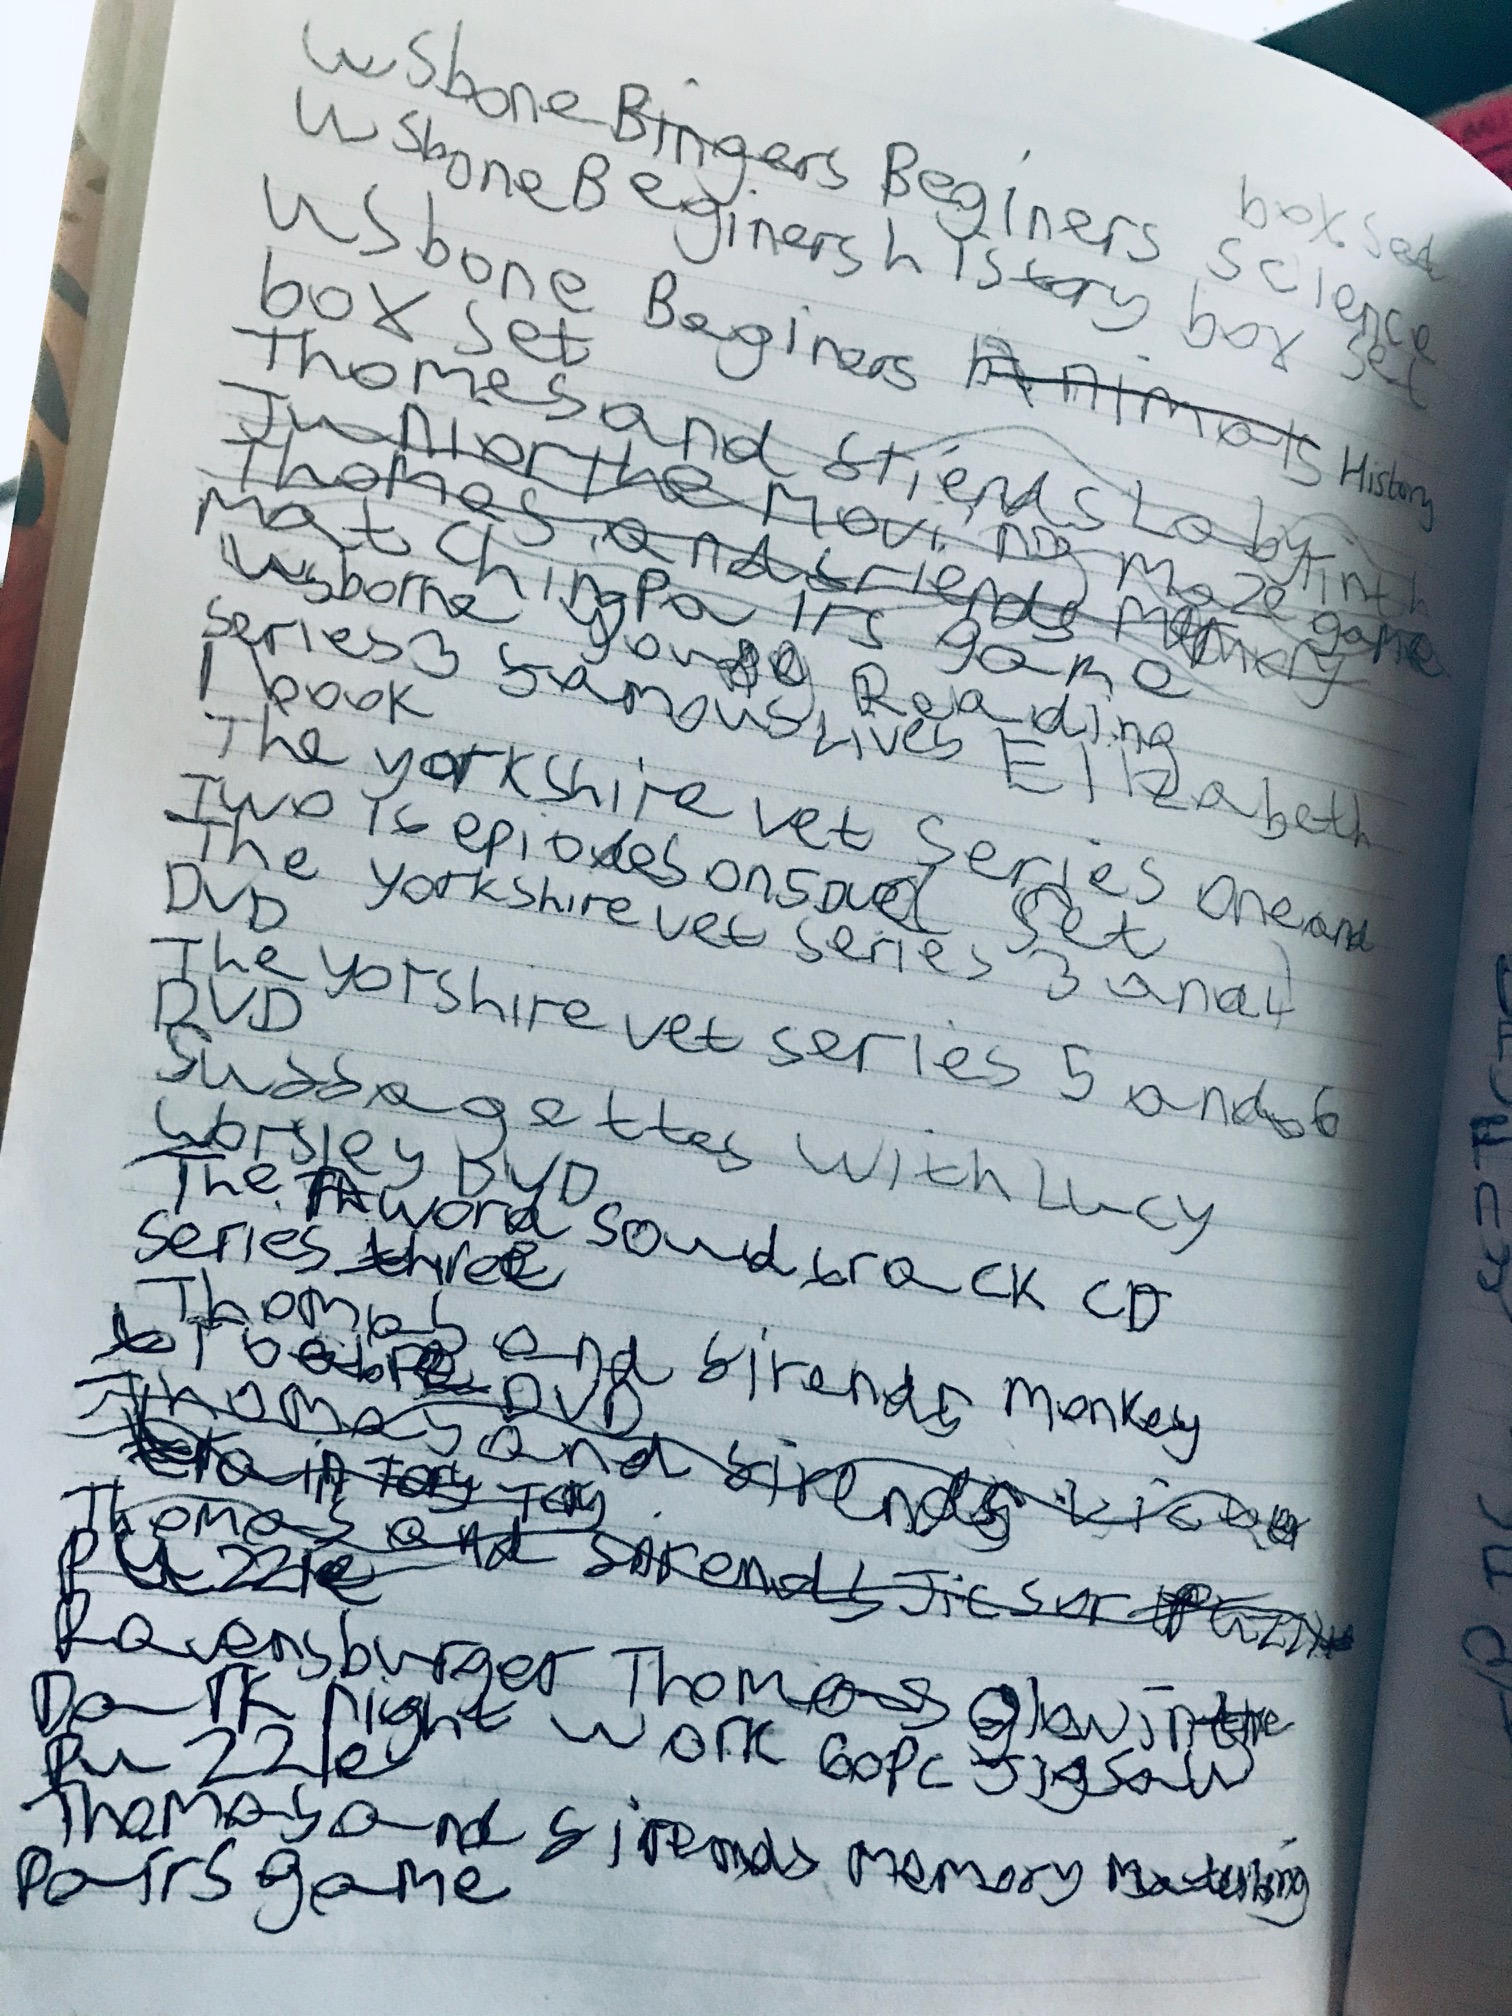 Wsbone Bingers Beginers Science box set
Wsbone Beginers history box set
Usbone Beginers Animals History
box set
Thomes and friends Labyrinth
Junior the Moving Maze game
Thomas and friends Memory
Matching Pairs game
Wsborne young Reading
series 3 famous Lives Elizabeth
I book
The yorkshire vet Series One and
Two 16 epiodes on 5 DVD Set
The yorkshire vet series 3 and 4
DVD
The yorshire vet series 5 and 6
DVD
Suffagettes with Lucy
Worsley DVD
The A word Soundtrack CD
series three
Thomas and firends Monkey
DVD
Thomas and firends
Toy
Thomas and firends Jicsor Puzzle
Puzzle
Ravensburger Thomas Glow in the
Dark night work 60pc Jigsaw
Puzzle
Thomas and firends Memory Matching
Pairs game